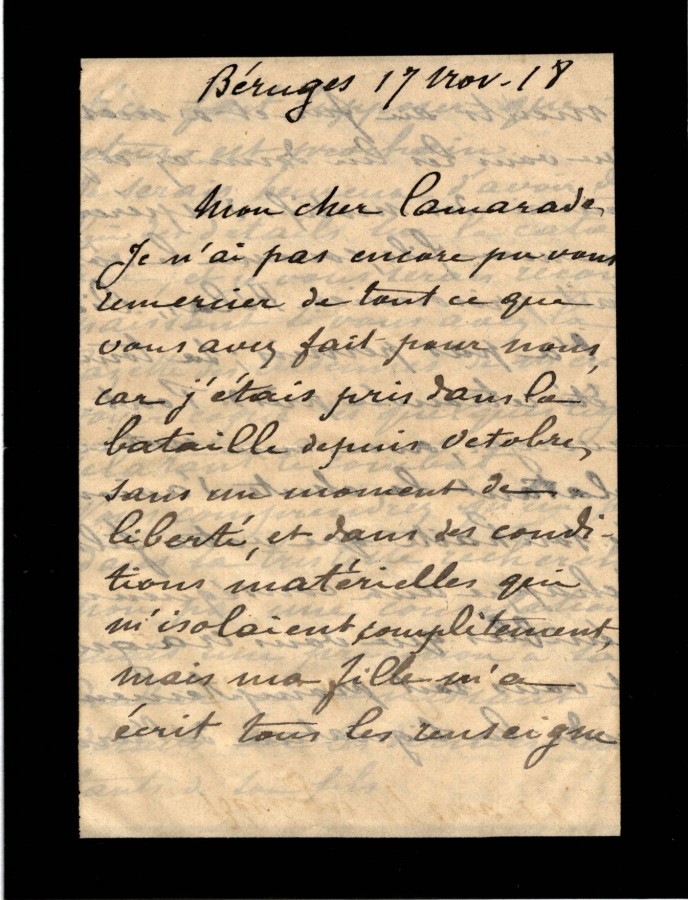 Béruges 17 nov. 18
Mon cher Camarade,
Je n'ai pas encore pu vous
remercier de tout ce que
vous avez fait pour nous,
car j'étais pris dans la
bataille depuis Octobre,
sans un moment de
liberté, et dans des condi-
tions matérielles qui
m'isolaient complètement,
mais ma fille m'a
écrit tous les renseigne